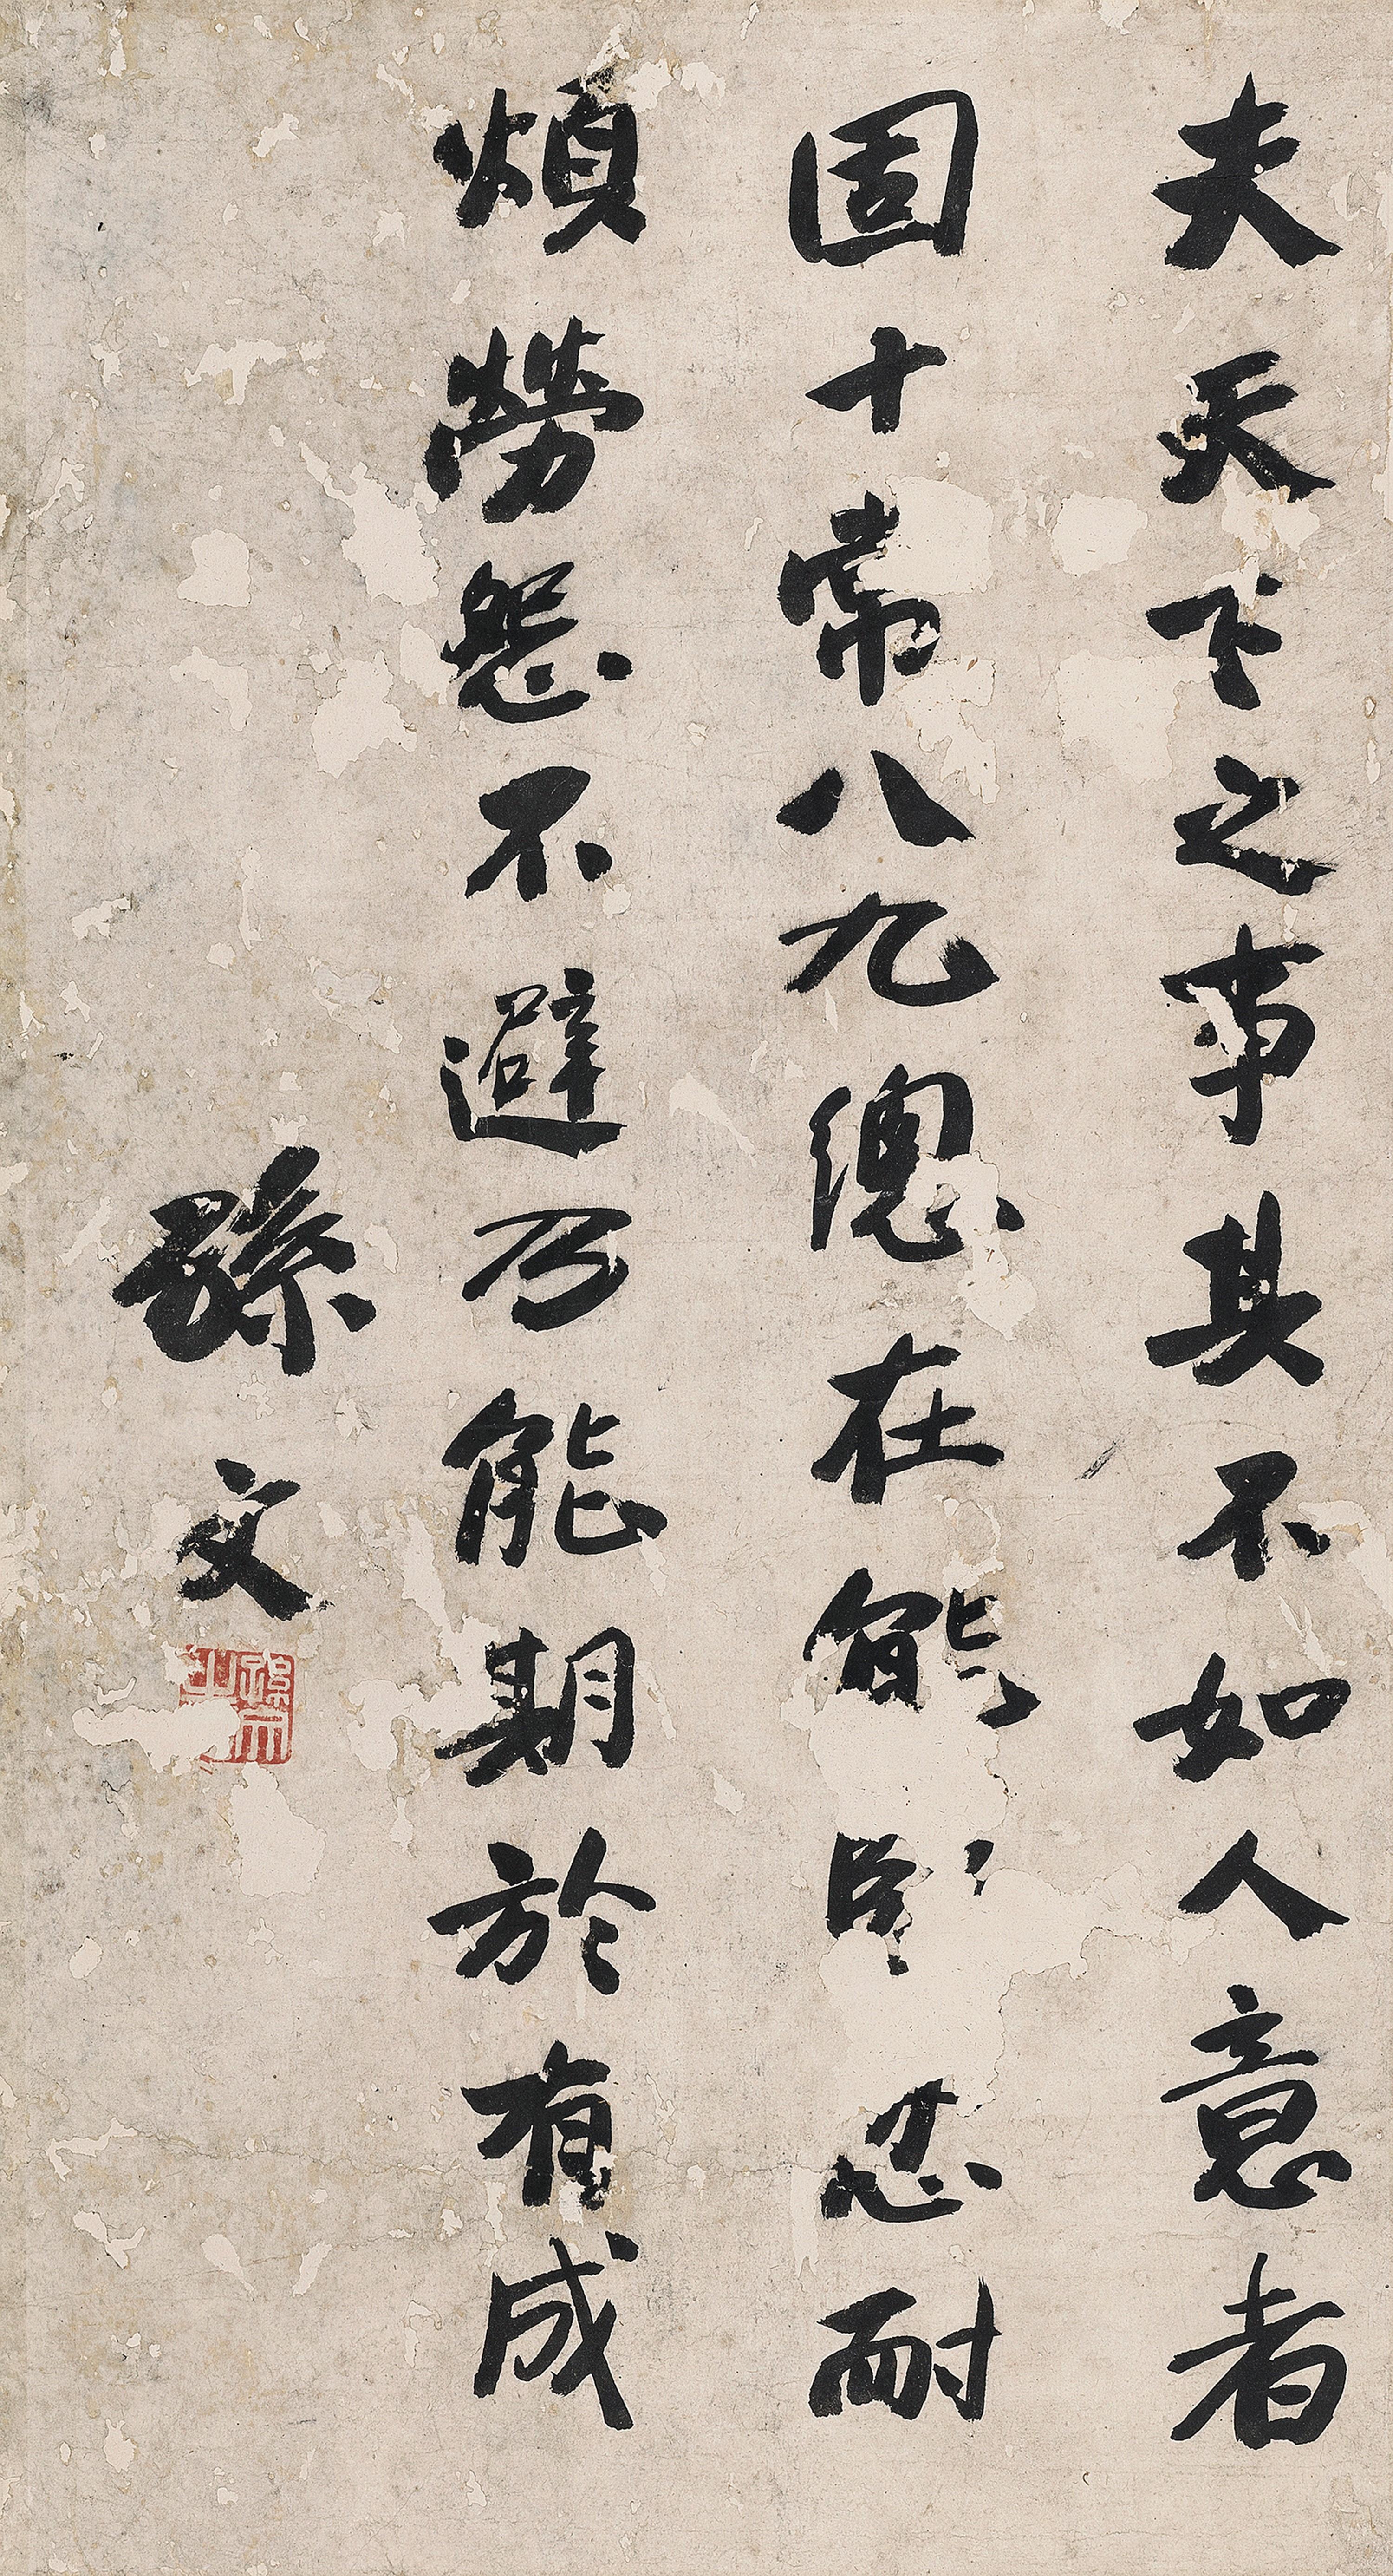 夫天下之事其不如人意者
固十常八九總在能堅忍耐
煩勞怨不避乃能期於有成
孫文
孫文之